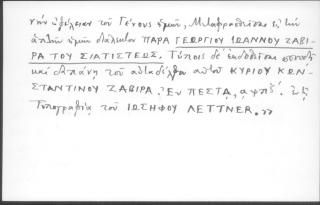 τὴν ὠφέλειαν τοῦ Γένους ἡμῶν, Μεταφρασθεῖσα εἰς τὴν
ἁπλῆν ἡμῶν διάλεκτον ΠΑΡΑ ΓΕΩΡΓΙΟΥ ΙΩΑΝΝΟΥ ΖΑΒΙ-
ΡΑ ΤΟΥ ΣΙΑΤΙΣΤΕΩΣ. Τύποις δὲ ἐκδοθεῖσα σπουδῇ
καὶ δαπάνῃ τοῦ αὐταδέλφου αὐτοῦ ΚΥΡΙΟΥ ΚΩΝ-
ΣΤΑΝΤΙΝΟΥ ΖΑΒΙΡΑ. Ἐν ΠΕΣΤΑ, αψπζ΄. Ἐκ τῆς
Τυπογραφίας τοῦ ΙΩΣΗΦΟΥ ΛΕΤΤΝΕΡ.»